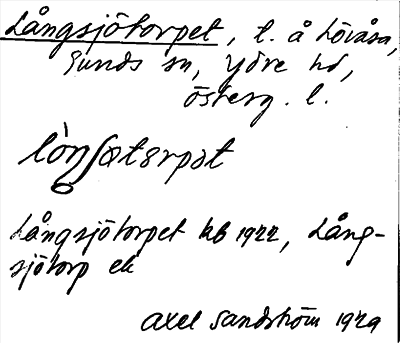 Långsjötorpet, t. å Lövåsa,
Sunds sn, Ydre hd,
Österg. l.
lòŋʃøtɘrpɘt
Långsjötorpet kb 1922, Lång-
sjötorp ek
Axel Sandström 1929